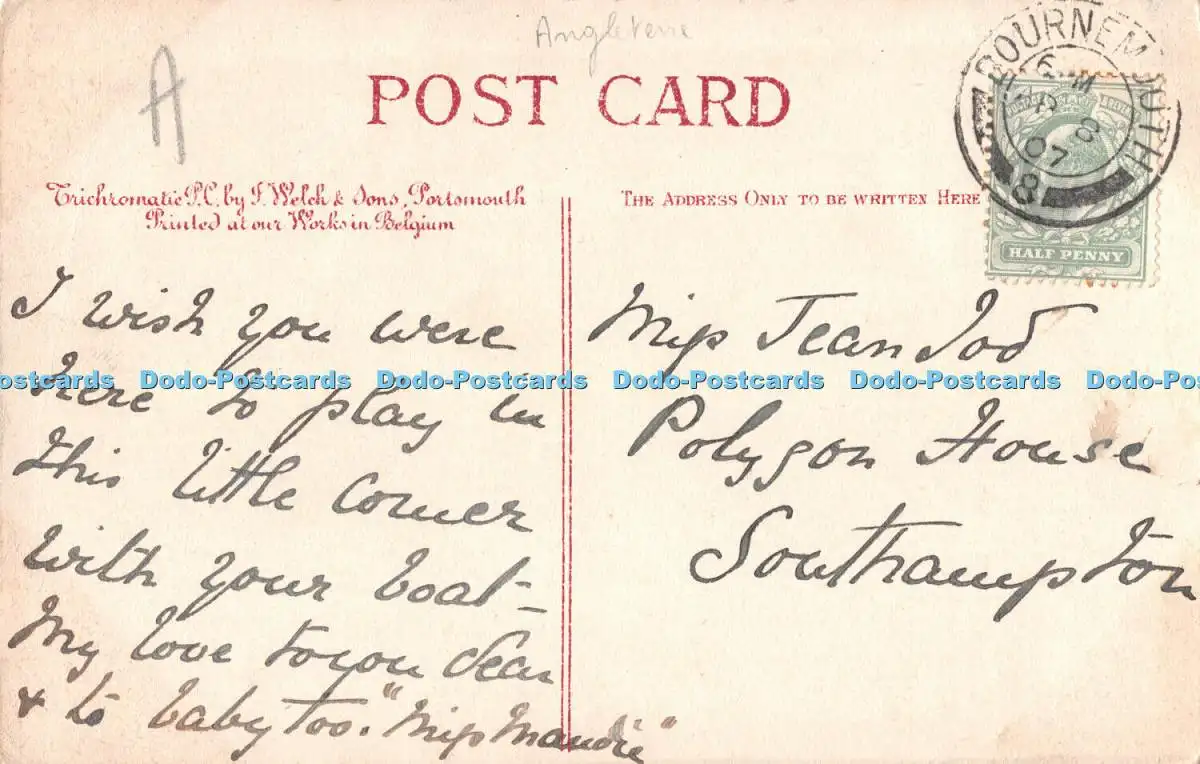 Angleterre
A
POST CARD
BOURNEMOUTH
8
07
8
HALF PENNY
Trichromatic P.C. by J. Welch & Sons, Portsmouth
Printed at our Works in Belgium
THE ADDRESS ONLY TO BE WRITTEN HERE
I wish you were
here to play in
this little corner
with your boat –
My love to you dear
& to baby too. "Miss Maudie"
Miss Jean Tod
Polygon House
Southampton
Dodo-Postcards Dodo-Postcards Dodo-Postcards Dodo-Postcards Dodo-Postcards